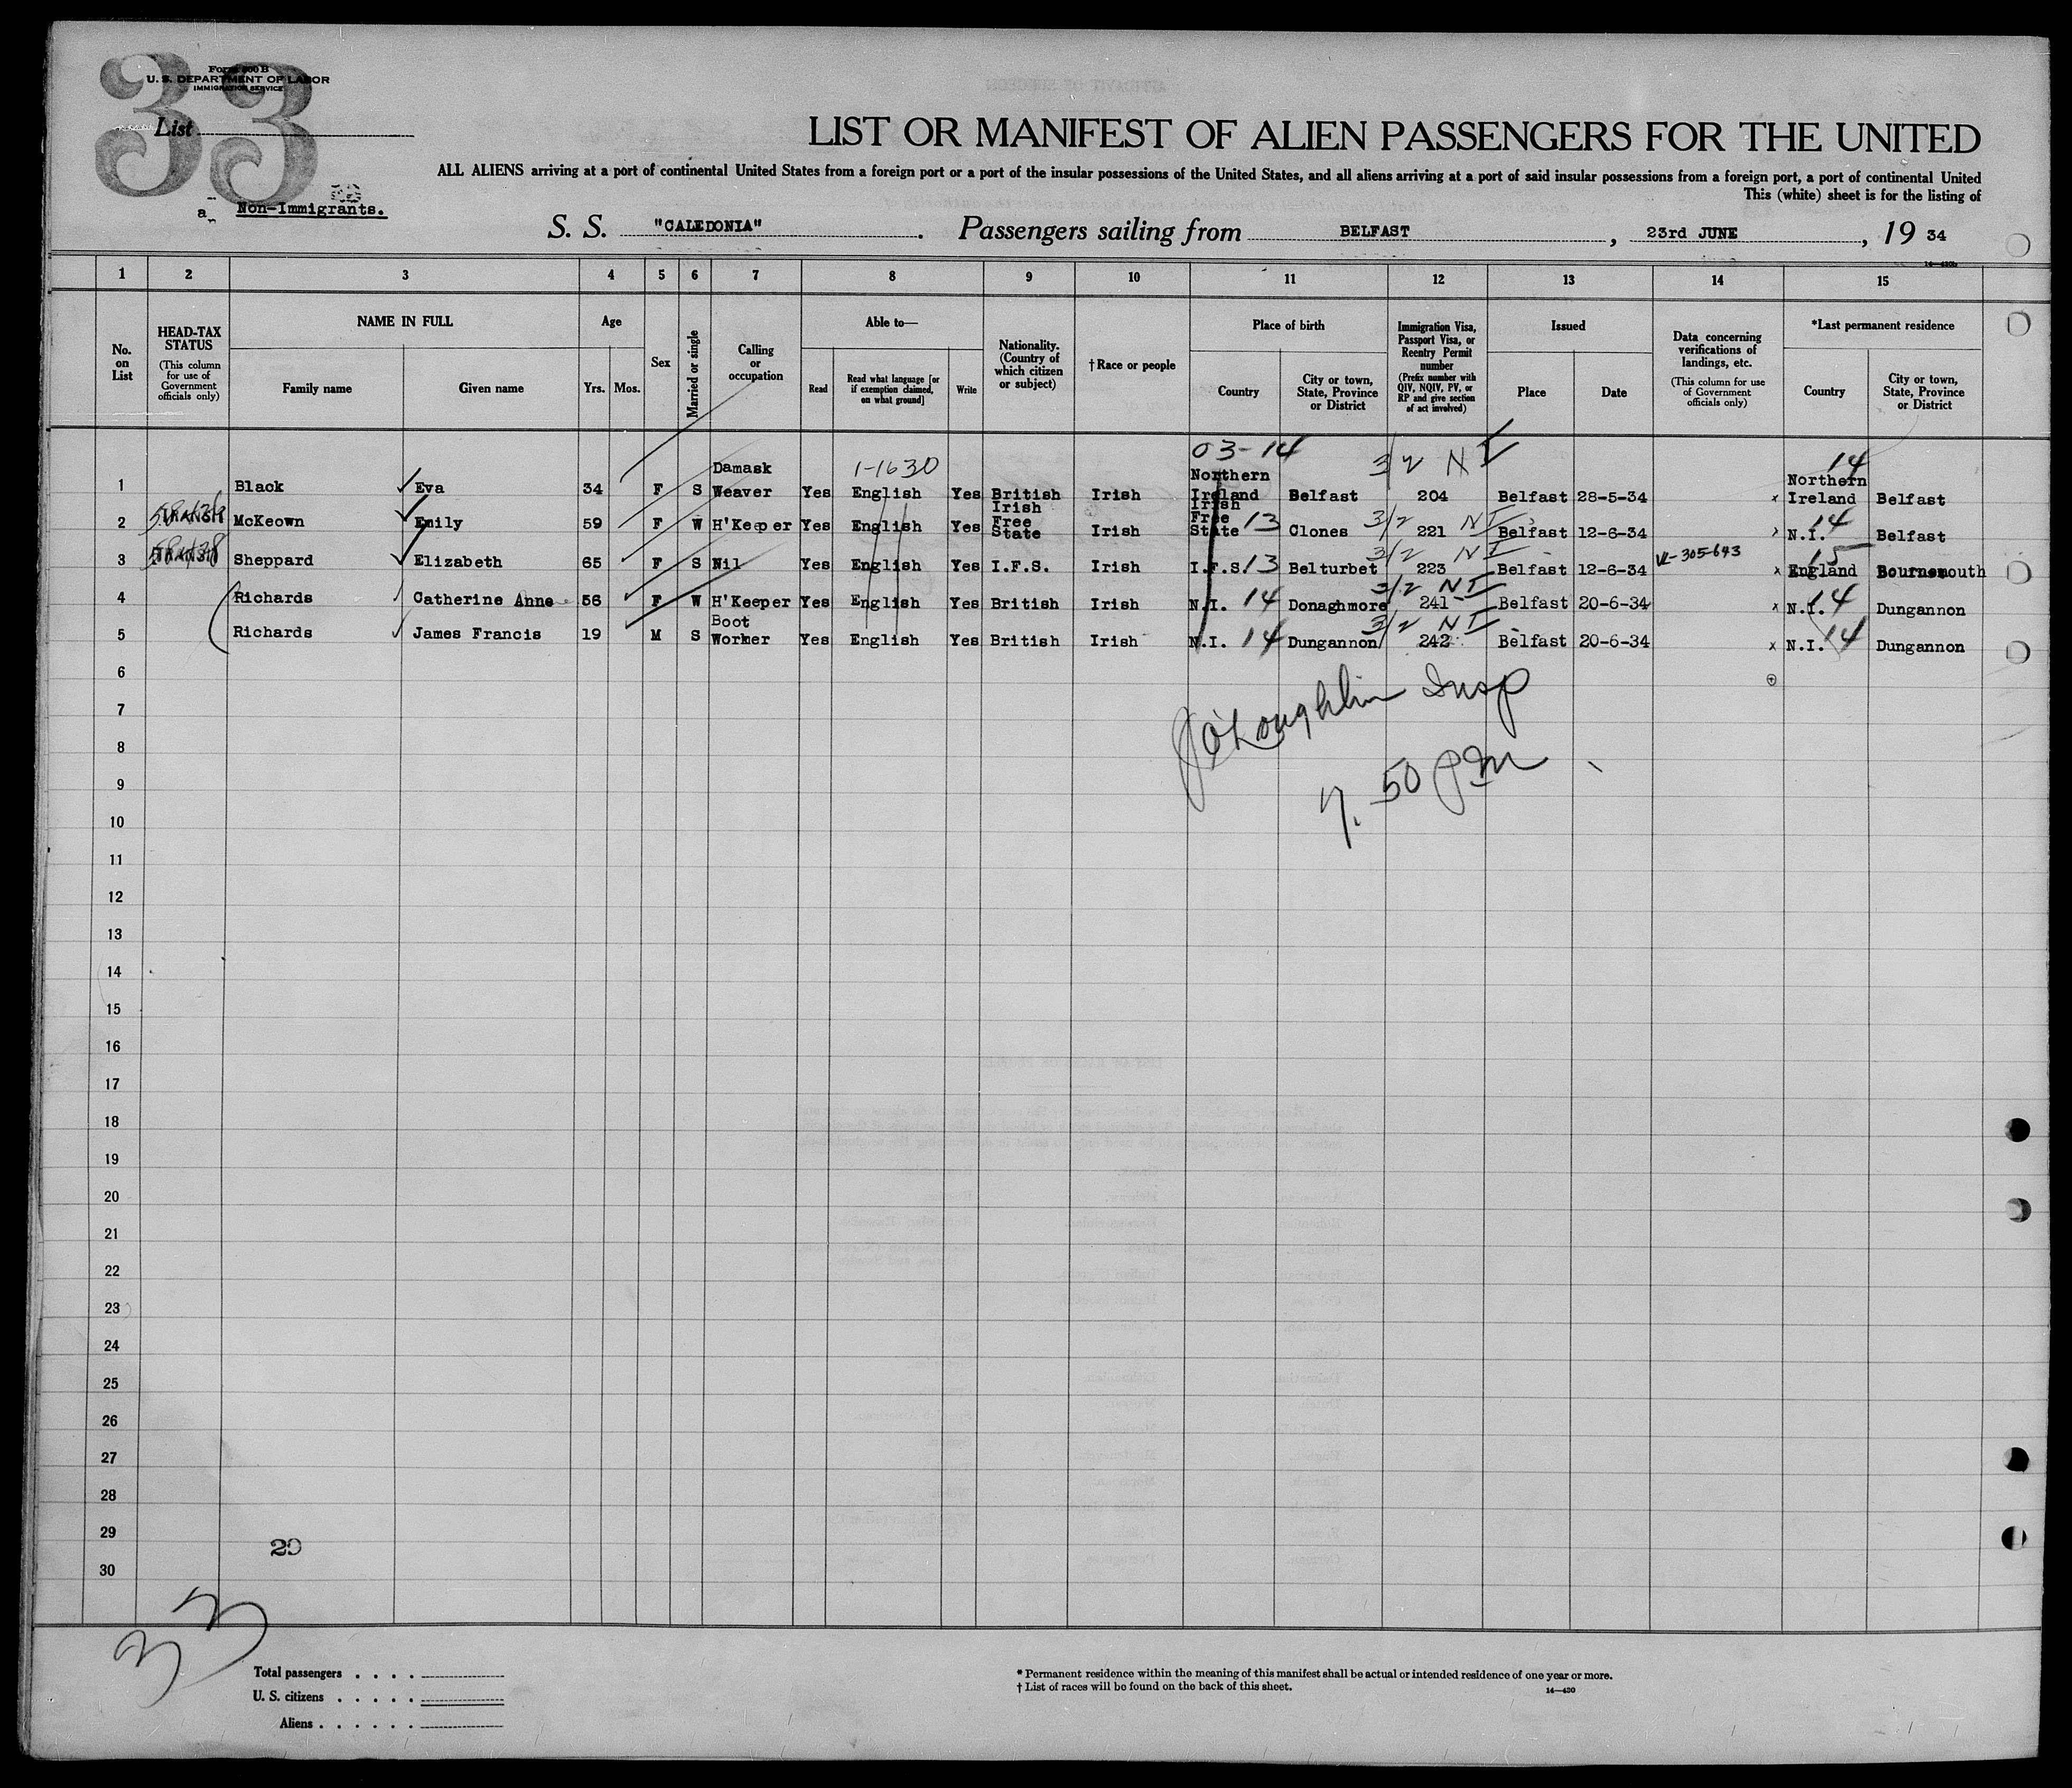 33
Form 500 B
U. S. DEPARTMENT OF LABOR
IMMIGRATION SERVICE
List
LIST OR MANIFEST OF ALIEN PASSENGERS FOR THE UNITED
ALL ALIENS arriving at a port of continental United States from a foreign port or a port of the insular possessions of the United States, and all aliens arriving at a port of said insular possessions from a foreign port, a port of continental United
This (white) sheet is for the listing of
Non-Immigrants.
S. S. "CALEDONIA". Passengers sailing from BELFAST, 23rd JUNE, 19 34
1 2 3 4 5 6 7 8 9 10 11 12 13 14 15
No. on List
HEAD-TAX STATUS (This column for use of Government officials only)
NAME IN FULL Family name Given name
Age Yrs. Mos.
Sex
Married or single
Calling or occupation
Able to— Read Read what language [or if exemption claimed, on what ground] Write
Nationality. (Country of which citizen or subject)
†Race or people
Place of birth Country City or town, State, Province or District
Immigration Visa, Passport Visa, or Reentry Permit number (Prefix number with QIV, NQIV, PV, or RP and give section of act involved)
Issued Place Date
Data concerning verifications of landings, etc. (This column for use of Government officials only)
*Last permanent residence Country City or town, State, Province or District
03-14
1 Black Eva 34 F S Damask Weaver Yes 1-1630 English Yes British Irish Northern Ireland Belfast 3/2 NI 204 Belfast 28-5-34 x 14 Northern Ireland Belfast
2 TRANSIT McKeown Emily 59 F W H'Keeper Yes English Yes Irish Free State Irish Irish Free State 13 Clones 3/2 NI 221 Belfast 12-6-34 N.I. 14 Belfast
3 TRANSIT Sheppard Elizabeth 65 F S Nil Yes English Yes I.F.S. Irish I.F.S. 13 Belturbet 3/2 NI 223 Belfast 12-6-34 VL-305-643 x 15 England Bournemouth
4 Richards Catherine Anne 56 F W H'Keeper Yes English Yes British Irish N.I. 14 Donaghmore 3/2 NI 241 Belfast 20-6-34 x N.I. 14 Dungannon
5 Richards James Francis 19 M S Boot Worker Yes English Yes British Irish N.I. 14 Dungannon 3/2 NI 242 Belfast 20-6-34 x N.I. 14 Dungannon
6
J O'Loughlin Insp
7
8
7.50 PM
9
10
11
12
13
14
15
16
17
18
19
20
21
22
23
24
25
26
27
28
29
29
30
33
Total passengers . . . .
U. S. citizens . . . . .
Aliens . . . . . .
* Permanent residence within the meaning of this manifest shall be actual or intended residence of one year or more.
† List of races will be found on the back of this sheet.
14—430